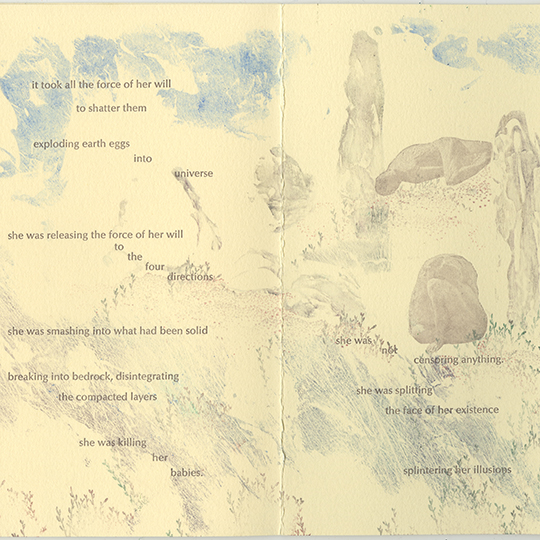 it took all the force of her will
to shatter them
exploding earth eggs
into
universe
she was releasing the force of her will
to
the
four
directions
she was smashing into what had been solid
breaking into bedrock, disintegrating
the compacted layers
she was killing
her
babies.
she was
not
censoring anything.
she was splitting
the face of her existence
splintering her illusions